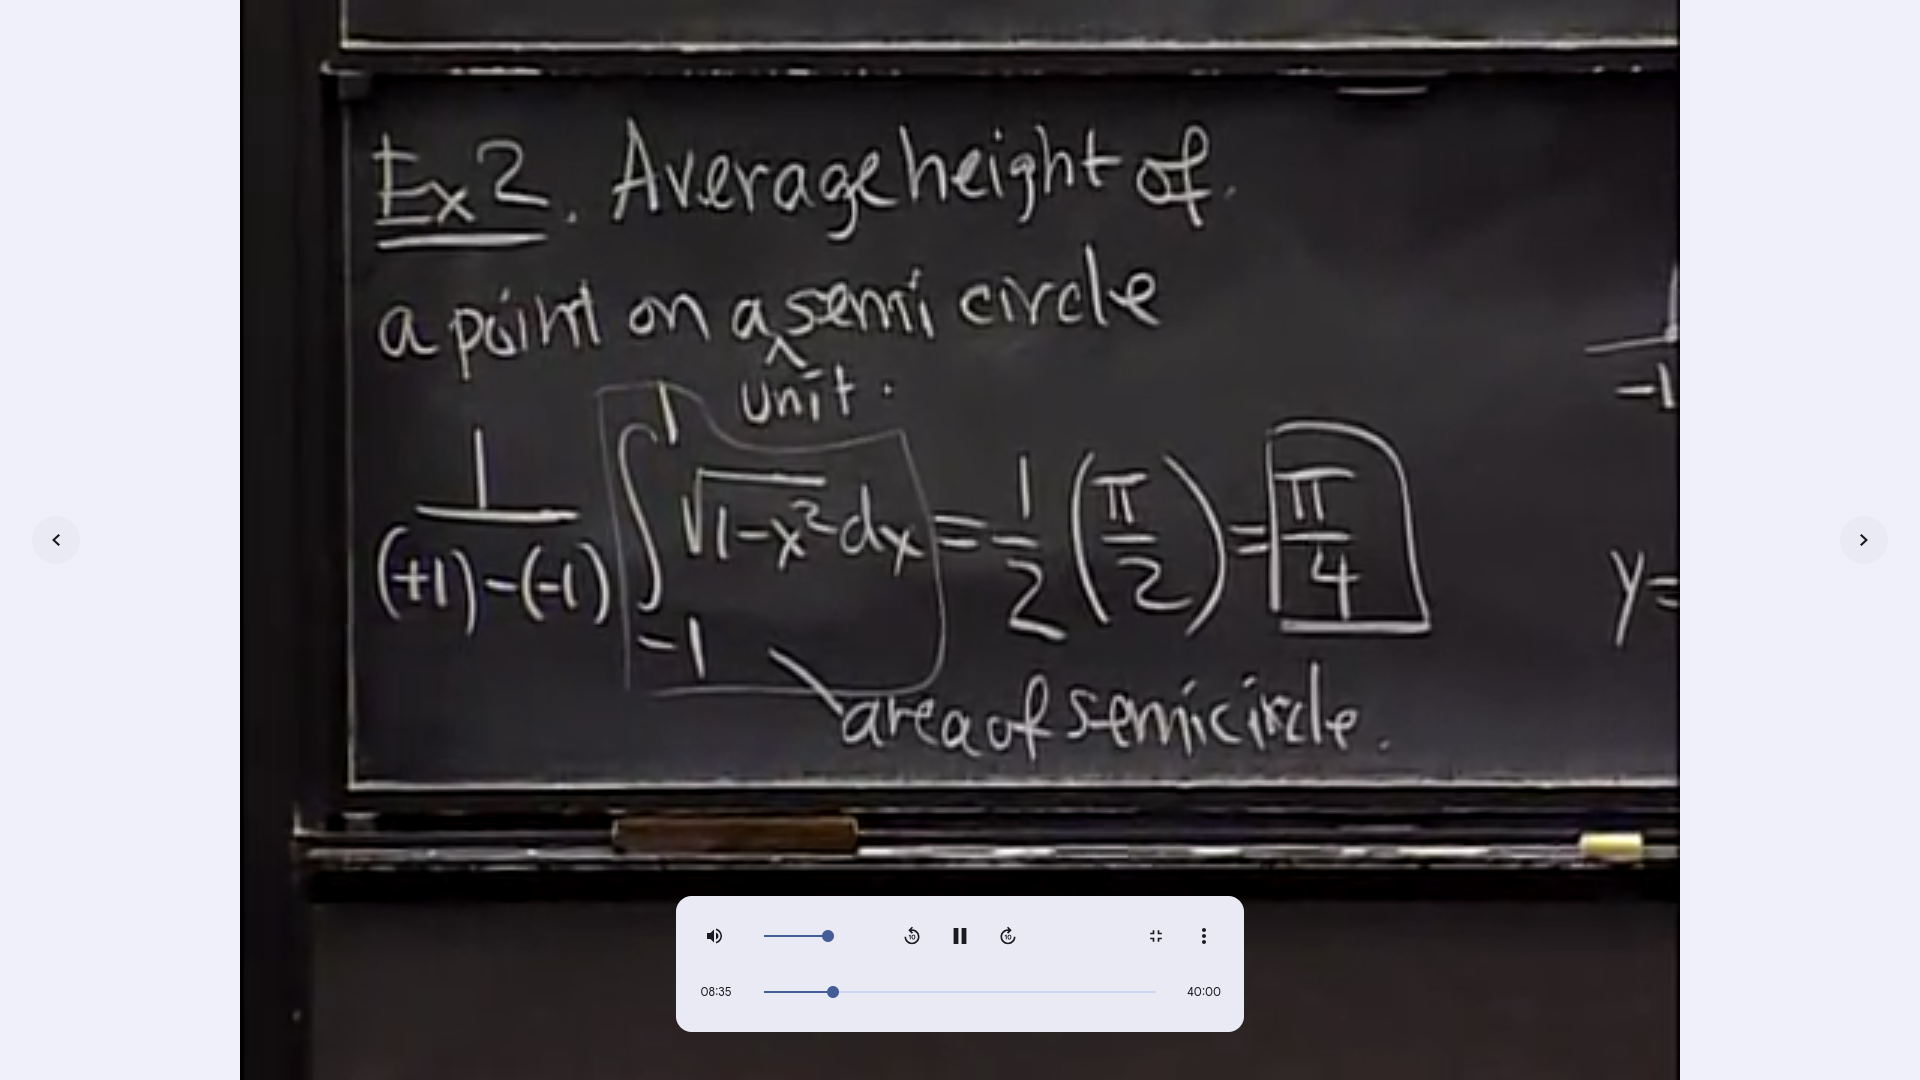 Ex 2. Average height of
a point on a semi circle
^
unit.
1/((+1)-(-1)) ∫_{-1}^{1} √(1-x²) dx = 1/2 (π/2) = π/4
area of semicircle.
-1
y=
10
10
08:35
40:00